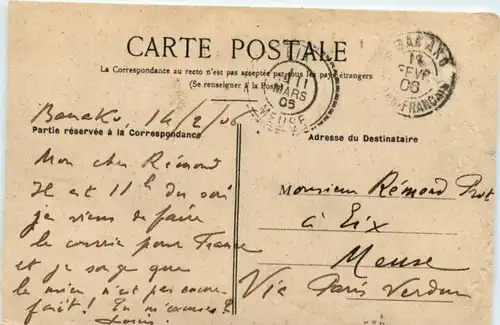 CARTE POSTALE
La Correspondance au recto n'est pas acceptée par tous les pays étrangers
(Se renseigner à la Poste)
BAMAKO
FEVR
06
FRANÇAIS
11
MARS
06
MEUSE
Bamako, 14/2/06
Partie réservée à la Correspondance
Adresse du Destinataire
Mon cher Rémond
Il est 11h du soir
je viens de faire
le courrier pour France
et je songe que
le mien n'est pas encore
fait! Tu m'excuses?
Louis
Monsieur Rémond Prot
à Eix
Meuse
Via Paris Verdun